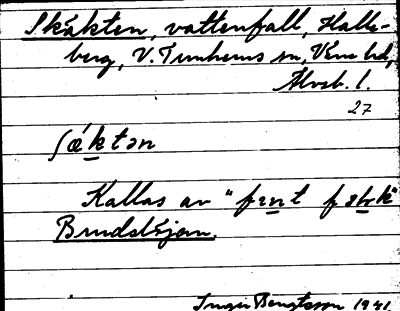 Skäkten, vattenfall, Halle-
berg, V. Tunhems sn, Väne hd,
Älvsb. l.
27
ʃǽktən
Kallas av "fint folk"
Brudslöjan.
Inger Bengtsson 1941